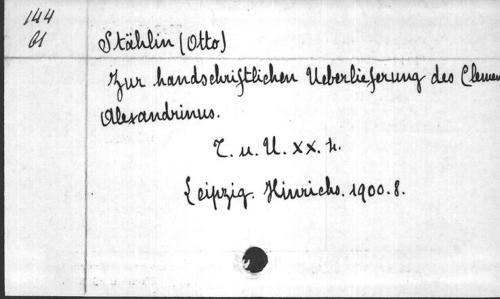 144
61
Stählin (Otto)
Zur handschriftlichen Ueberlieferung des Clemen
Alexandrinus.
T. u. U. XX. 4.
Leipzig. Hinrichs. 1900. 8.